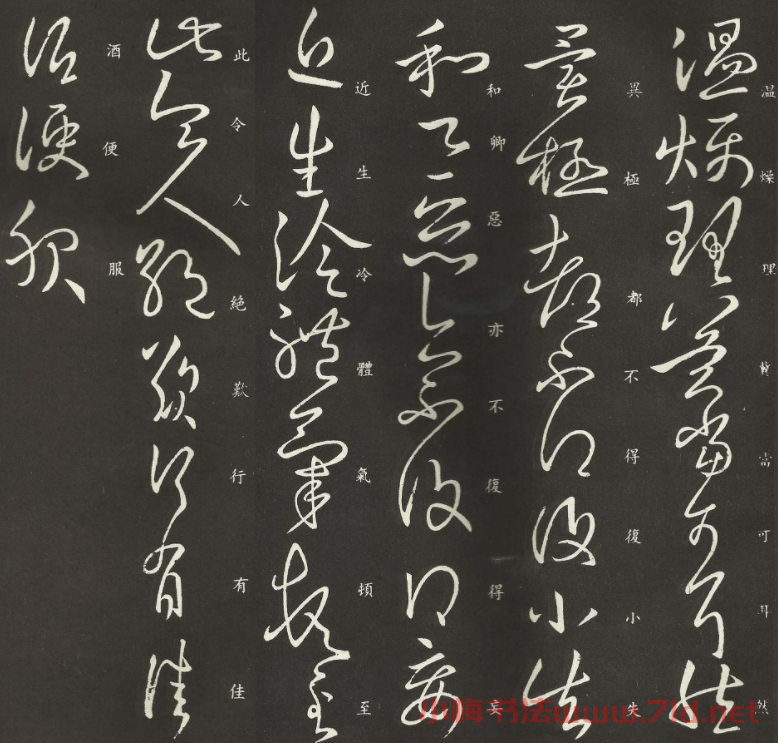 溫燥理當可耳然
異極都不得復小失
和卿惡亦不復得妄
近生冷體氣頓至
此令人絕歎行有佳
酒便服
书法www.7ld.net